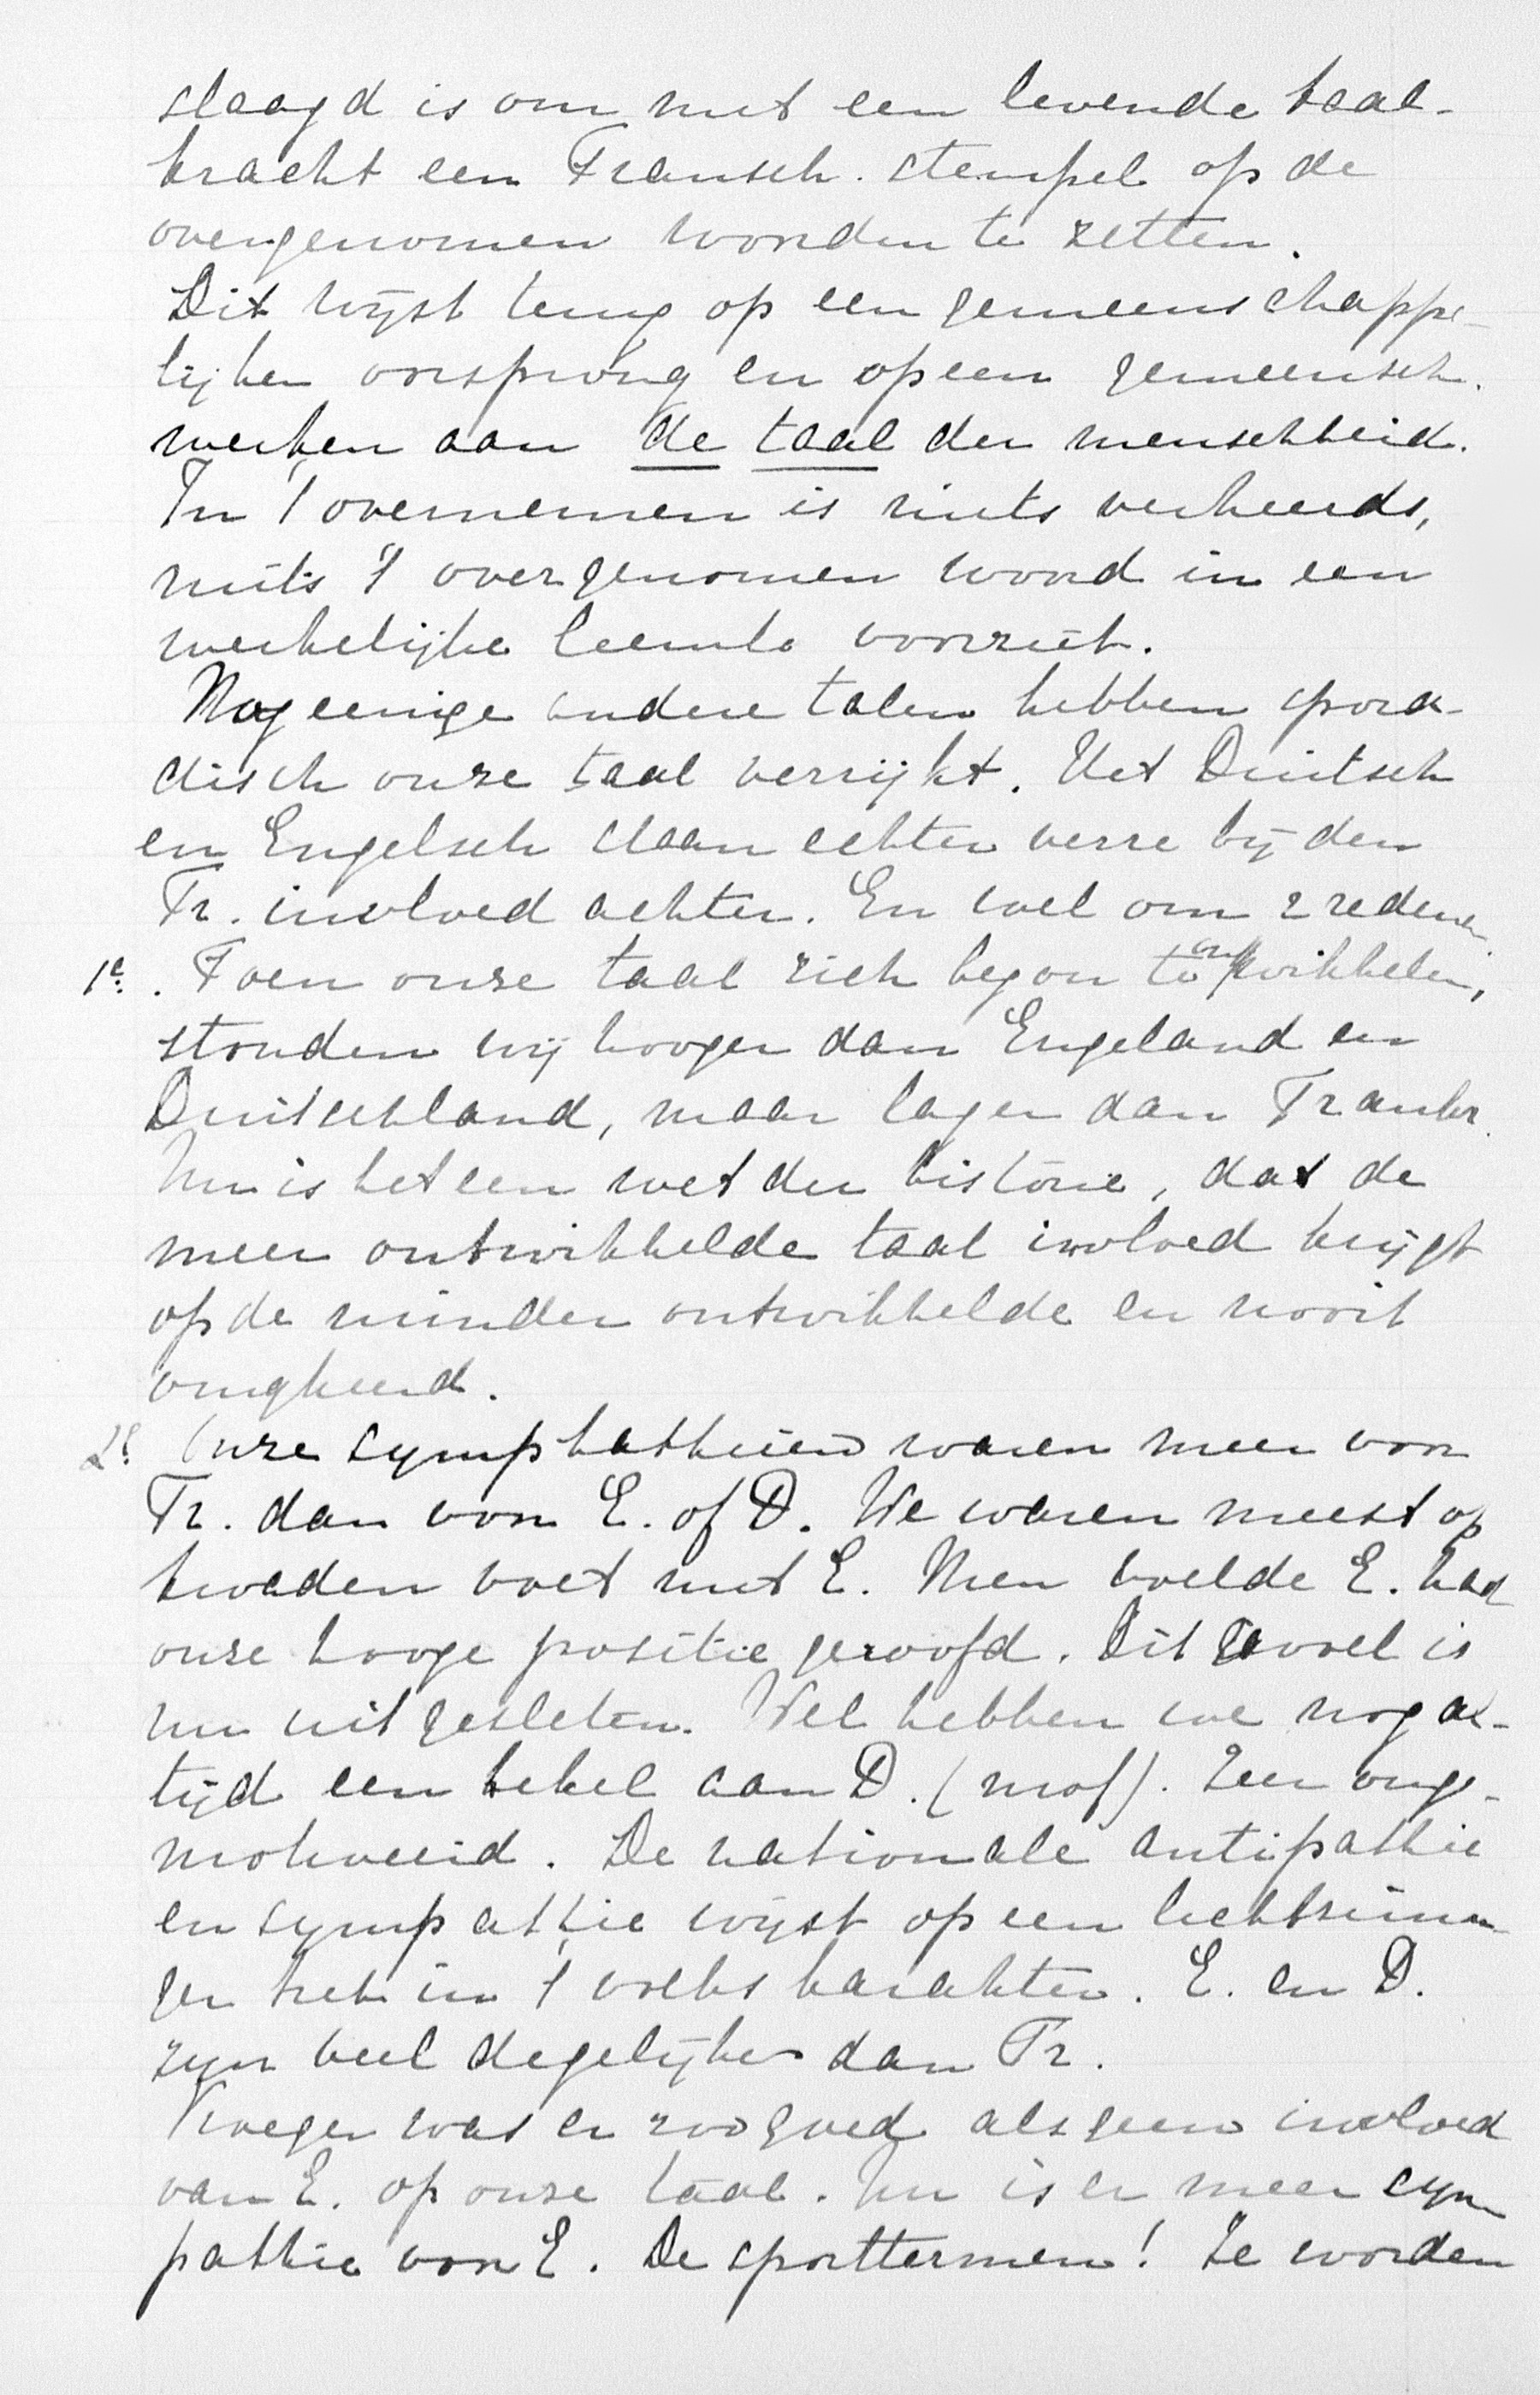 slaagd is om met een levende taal-
kracht een Fransch. stempel op de
overgenomen woorden te zetten.
Dit wijst terug op een gemeenschappe-
lijken oorsprong en op een gemeensch.
werken aan de taal der menschheid.
In 't overnemen is niets verkeerds,
mits 't overgenomen woord in een
werkelijke leemte voorziet.
Nog eenige andere talen hebben spora-
disch onze taal verrijkt. Het Duitsch
en Engelsch staan echter verre bij den
Fr. invloed achter. En wel om 2 redenen
1e. Toen onze taal zich begon te ontwikkelen,
stonden wij hooger dan Engeland en
Duitschland, maar lager dan Frankr.
Nu is het een wet der historie, dat de
meer ontwikkelde taal invloed krijgt
op de minder ontwikkelde en nooit
omgkeerd.
2e Onze symphathieën waren meer voor
Fr. dan voor E. of D. We waren meest op
kwaden voet met E. Men voelde E. had
onze hooge positie geroofd. Dit gevoel is
nu uitgesleten. Wel hebben we nog al-
tijd een hekel aan D. (mof). Zeer onge-
motiveerd. De nationale antipathie
en sympathie wijst op een lichtzinni-
gen trek in 't volkskarakter. E. en D.
zijn veel degelijker dan Fr.
Vroeger was er zoo goed als geen invloed
van E. op onze taal. Nu is er meer sym
pathie voor E. De sporttermen! Ze worden